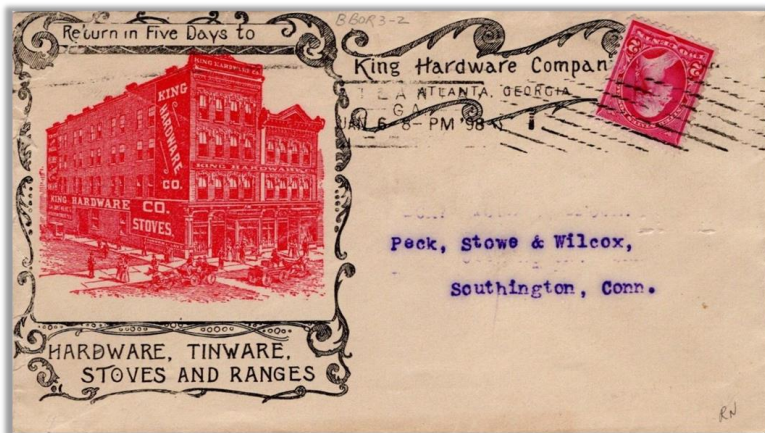 Return in Five Days to
BBOR3-2
King Hardware Compan
ATLANTA, GEORGIA
GA
JAN 6 8-PM '98
2
2
KING HARDWARE CO.
KING
HARDWARE
CO.
KING HARDWARE
KING HARDWARE CO.
STOVES.
Peck, Stowe & Wilcox,
Southington, Conn.
HARDWARE, TINWARE,
STOVES AND RANGES
RN